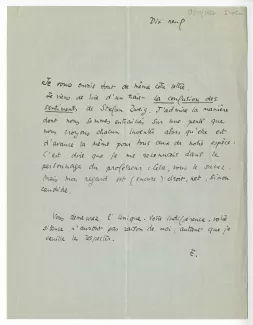 Dix neuf
Je vous envoie tout de même cette lettre
Je viens de lire d'un trait la confusion des
sentiments de Stefan Zweig. J'admire la manière
dont nous sommes entraînés sur une pente que
nous croyons chacun inventée alors qu'elle est
d'avance la même pour tous ceux de notre espèce.
C'est dire que je me reconnais dans le
personnage du professeur : cela, vous le savez.
Mais mon regard est (encore) droit, net, sinon
candide.
Vous demeurez l'Unique. Votre indifférence, votre
silence n'auront pas raison de moi, autant que je
veuille les respecter.
E.